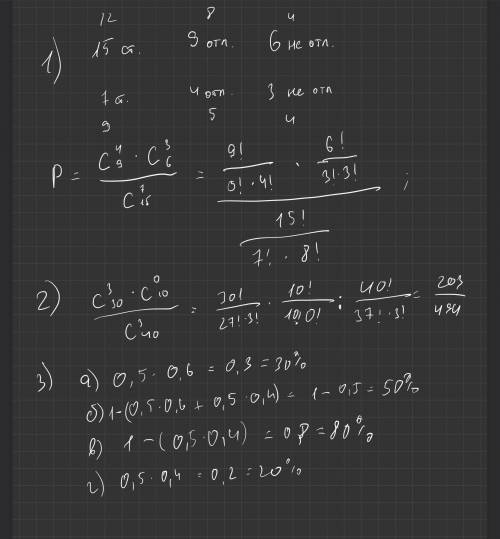 12 8 4
1) 15 ст. 9 отл. 6 не отл.
7 ст. 4 отл. 3 не отл
9 5 4
P = (C₉⁴ · C₆³) / C₁₅⁷ = (9! / (5! · 4!) · 6! / (3! · 3!)) / (15! / (7! · 8!)) ;
2) (C₃₀³ · C₁₀⁰) / C₄₀³ = 30! / (27! · 3!) · 10! / (10! · 0!) : 40! / (37! · 3!) = 203 / 494
3) а) 0,5 · 0,6 = 0,3 = 30%
б) 1-(0,5·0,6 + 0,5·0,4) = 1 - 0,5 = 50%
в) 1 - (0,5·0,4) = 0,8 = 80%
г) 0,5 · 0,4 = 0,2 = 20%